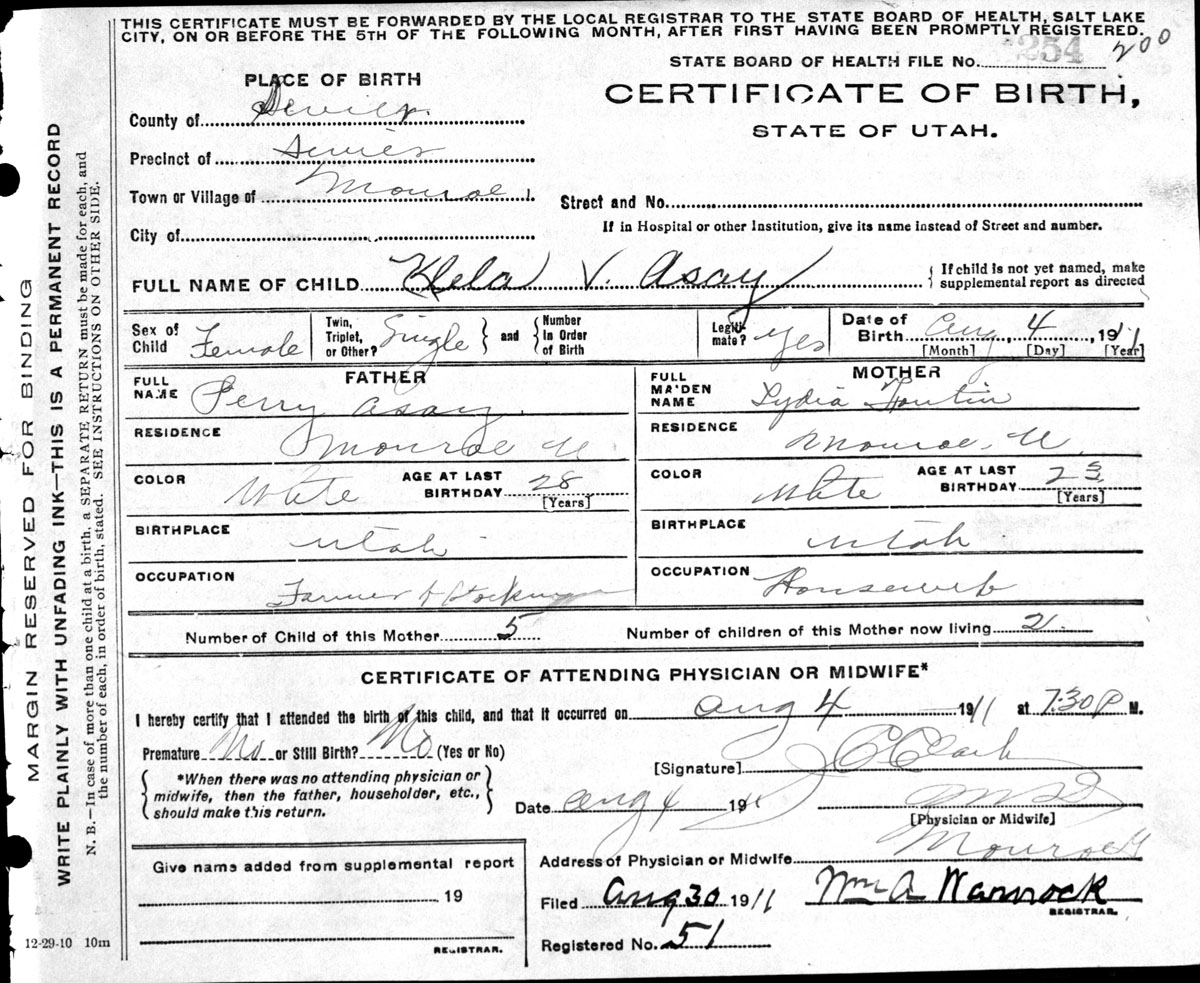 THIS CERTIFICATE MUST BE FORWARDED BY THE LOCAL REGISTRAR TO THE STATE BOARD OF HEALTH, SALT LAKE
CITY, ON OR BEFORE THE 5TH OF THE FOLLOWING MONTH, AFTER FIRST HAVING BEEN PROMPTLY REGISTERED.
STATE BOARD OF HEALTH FILE No. 254 200
CERTIFICATE OF BIRTH,
STATE OF UTAH.
PLACE OF BIRTH
County of Sevier
Precinct of Sevier
Town or Village of Monroe
City of
Street and No.
If in Hospital or other Institution, give its name instead of Street and number.
FULL NAME OF CHILD V. Asay
If child is not yet named, make
supplemental report as directed
Sex of Child Female
Twin, Triplet, or Other? Single and Number In Order of Birth
Legiti- mate? Yes
Date of Birth Aug 4, 1911
[Month] [Day] [Year]
FATHER
FULL NAME Perry Asay
RESIDENCE Monroe U
COLOR White
AGE AT LAST BIRTHDAY 28
[Years]
BIRTHPLACE Utah
OCCUPATION Farmer & Stockman
MOTHER
FULL MAIDEN NAME Lydia
RESIDENCE Monroe, U
COLOR White
AGE AT LAST BIRTHDAY
[Years]
BIRTHPLACE Utah
OCCUPATION Housewife
Number of Child of this Mother 5
Number of children of this Mother now living 2
CERTIFICATE OF ATTENDING PHYSICIAN OR MIDWIFE*
I hereby certify that I attended the birth of this child, and that it occurred on Aug 4 1911 at 7.30 P M.
Premature No or Still Birth? No (Yes or No)
*When there was no attending physician or
midwife, then the father, householder, etc.,
should make this return.
[Signature] J C Clark
Date Aug 4 1911
M D
[Physician or Midwife]
Address of Physician or Midwife Monroe U
Give name added from supplemental report
19
REGISTRAR.
Filed Aug 30 1911
Wm A Warnock
REGISTRAR.
Registered No. 51
12-29-10 10m
MARGIN RESERVED FOR BINDING
WRITE PLAINLY WITH UNFADING INK—THIS IS A PERMANENT RECORD
N. B.—In case of more than one child at a birth, a SEPARATE RETURN must be made for each, and
the number of each, in order of birth, stated. SEE INSTRUCTIONS ON OTHER SIDE.